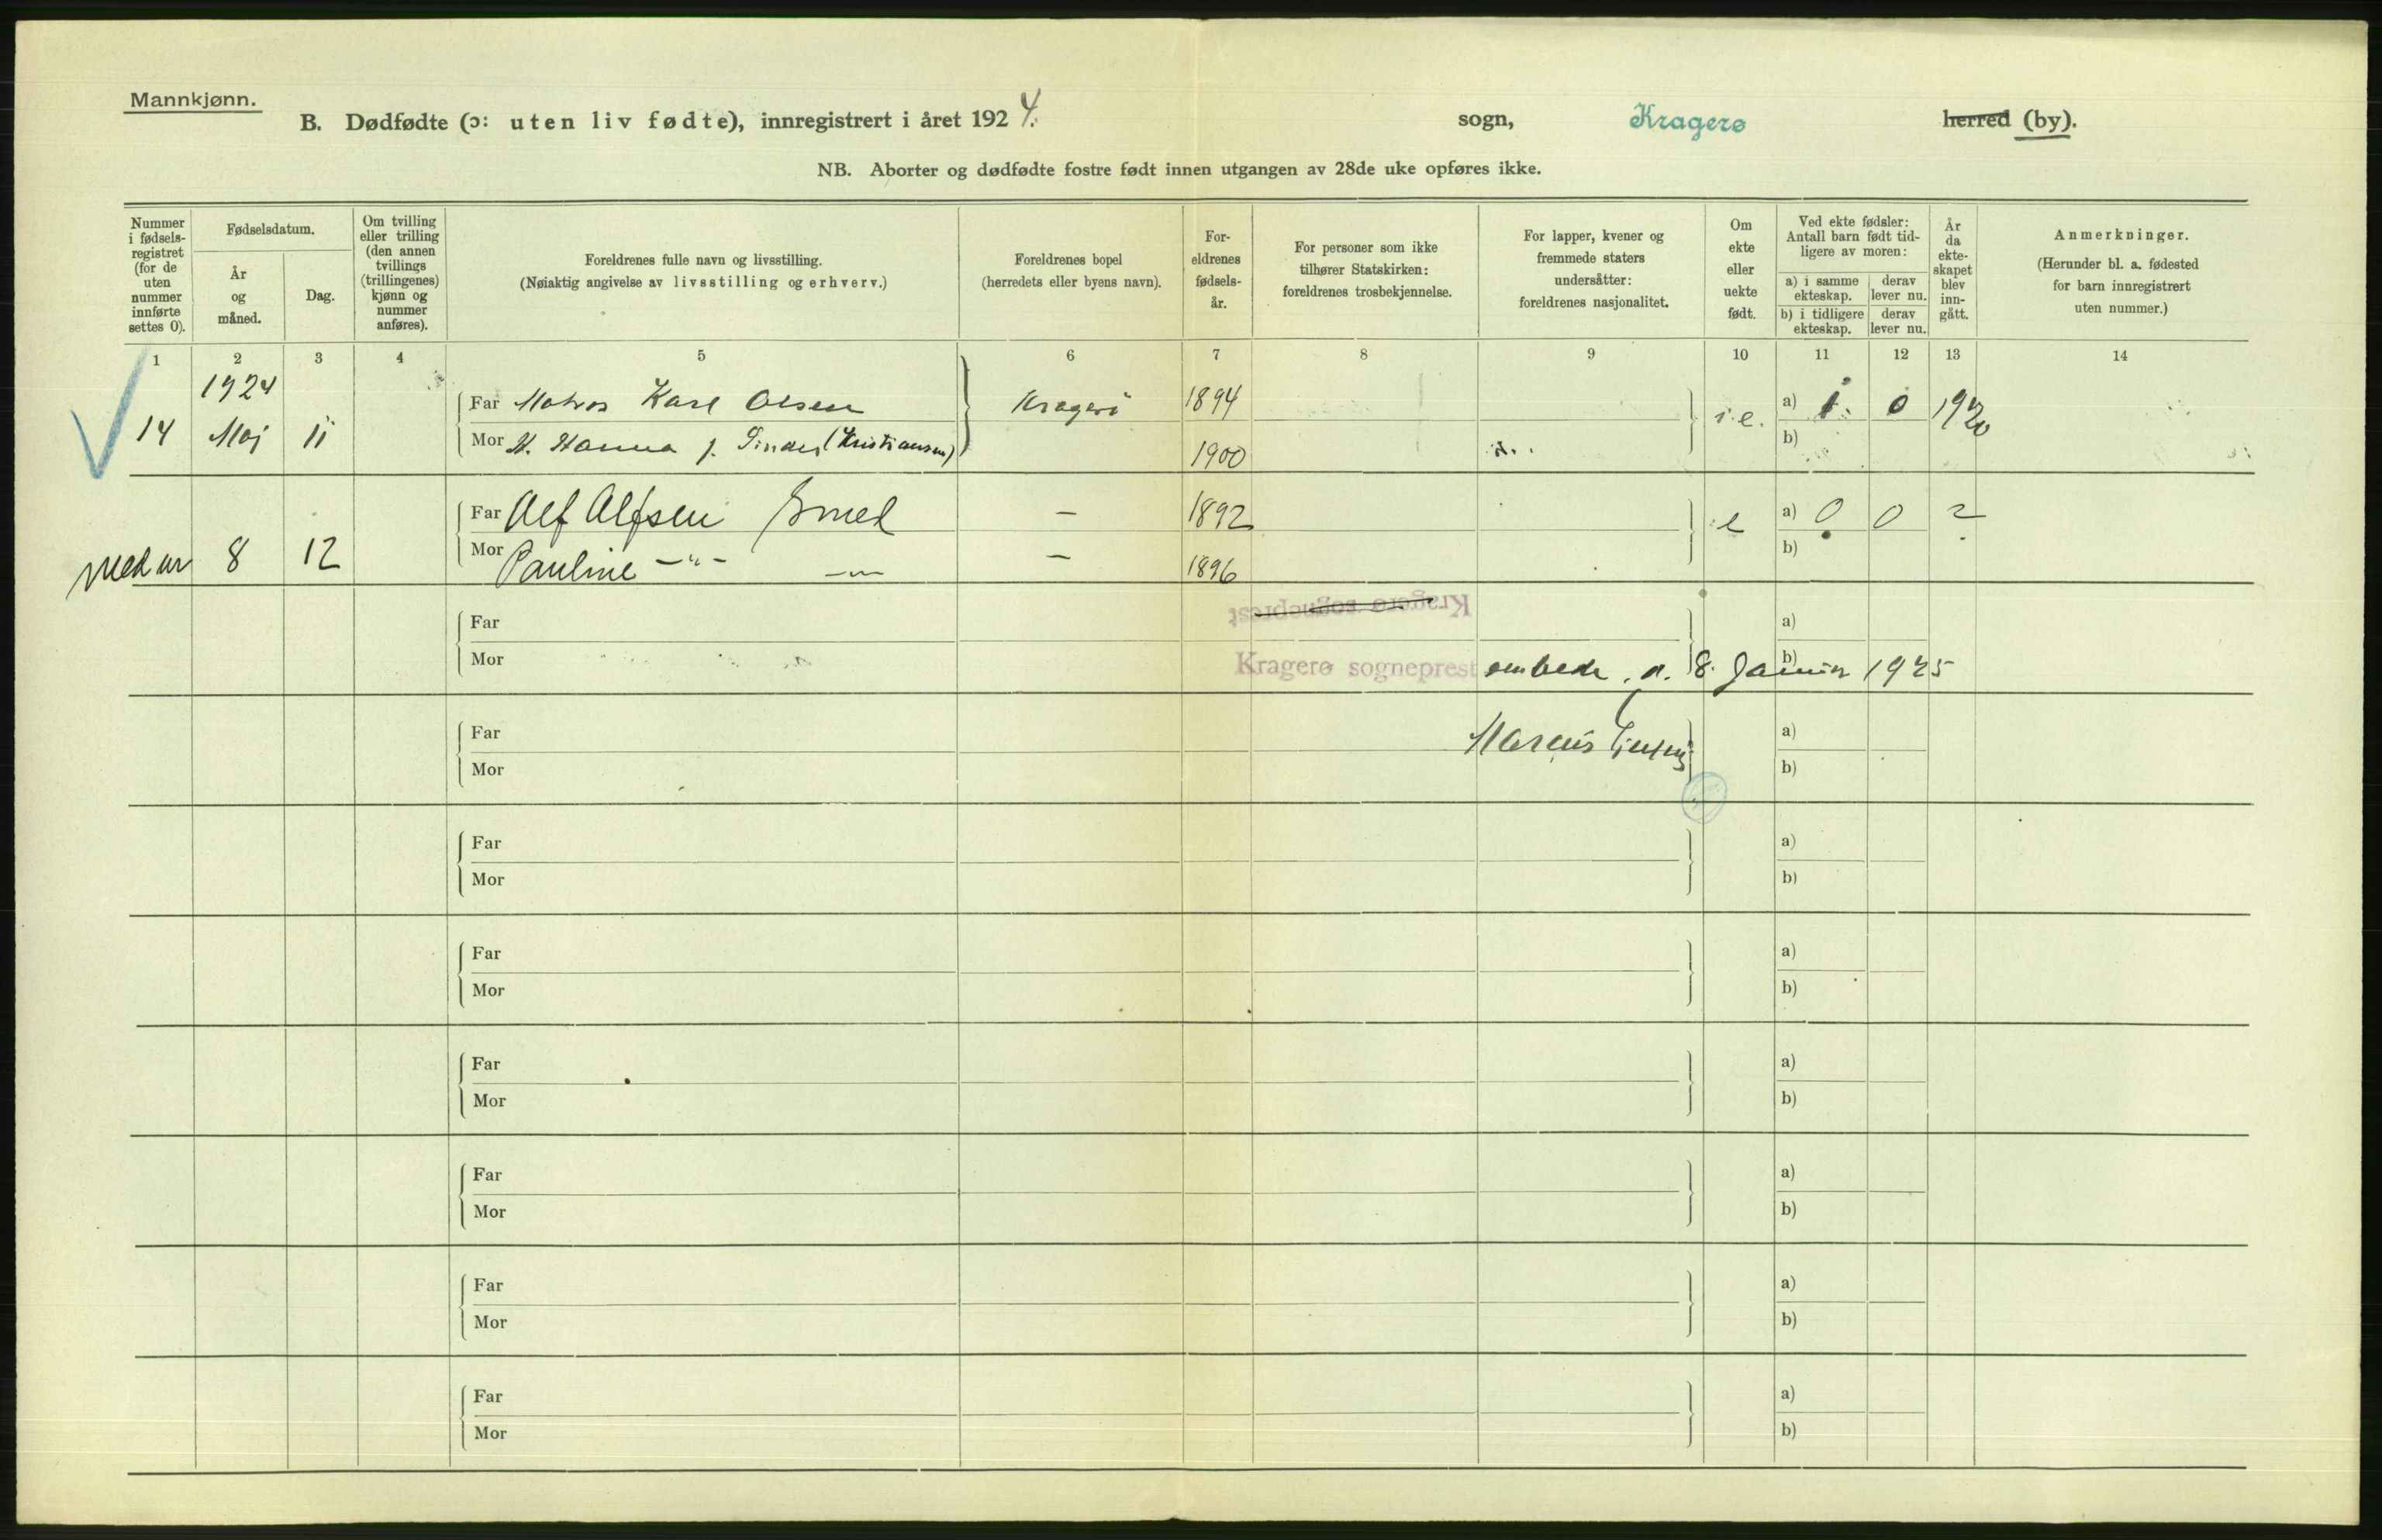 Mannkjønn.
B. Dødfødte (ɔ: uten liv fødte), innregistrert i året 1924. sogn, Kragerø herred (by).
NB. Aborter og dødfødte fostre født innen utgangen av 28de uke opføres ikke.
Nummer i fødsels-registret (for de uten nummer innførte settes 0).
Fødselsdatum.
År og måned.
Dag.
Om tvilling eller trilling (den annen tvillings (trillingenes) kjønn og nummer anføres).
Foreldrenes fulle navn og livsstilling.
(Nøiaktig angivelse av livsstilling og erhverv.)
Foreldrenes bopel
(herredets eller byens navn).
For-eldrenes fødsels-år.
For personer som ikke tilhører Statskirken: foreldrenes trosbekjennelse.
For lapper, kvener og fremmede staters undersåtter: foreldrenes nasjonalitet.
Om ekte eller uekte født.
Ved ekte fødsler: Antall barn født tid-ligere av moren:
a) i samme ekteskap.
derav lever nu.
b) i tidligere ekteskap.
derav lever nu.
År da ekte-skapet blev inn-gått.
Anmerkninger.
(Herunder bl. a. fødested for barn innregistrert uten nummer.)
1 2 3 4 5 6 7 8 9 10 11 12 13 14
1924
14 Maj 11 Far Matros Karl Olsen Kragerö 1894 a) 1. 0 1920
Mor M. Hanna f. (Kristiansen) 1900 b)
Far Alf Alfsen Smed — 1892 e a) 0 0 2
8 12 Mor Pauline —"— — 1896 b)
Kragerø sogneprest
Far a)
Mor Kragerø sogneprest embede, d. 8. Januar 1925 b)
Far Marcus a)
Mor b)
Far a)
Mor b)
Far a)
Mor b)
Far a)
Mor b)
Far a)
Mor b)
Far a)
Mor b)
Far a)
Mor b)